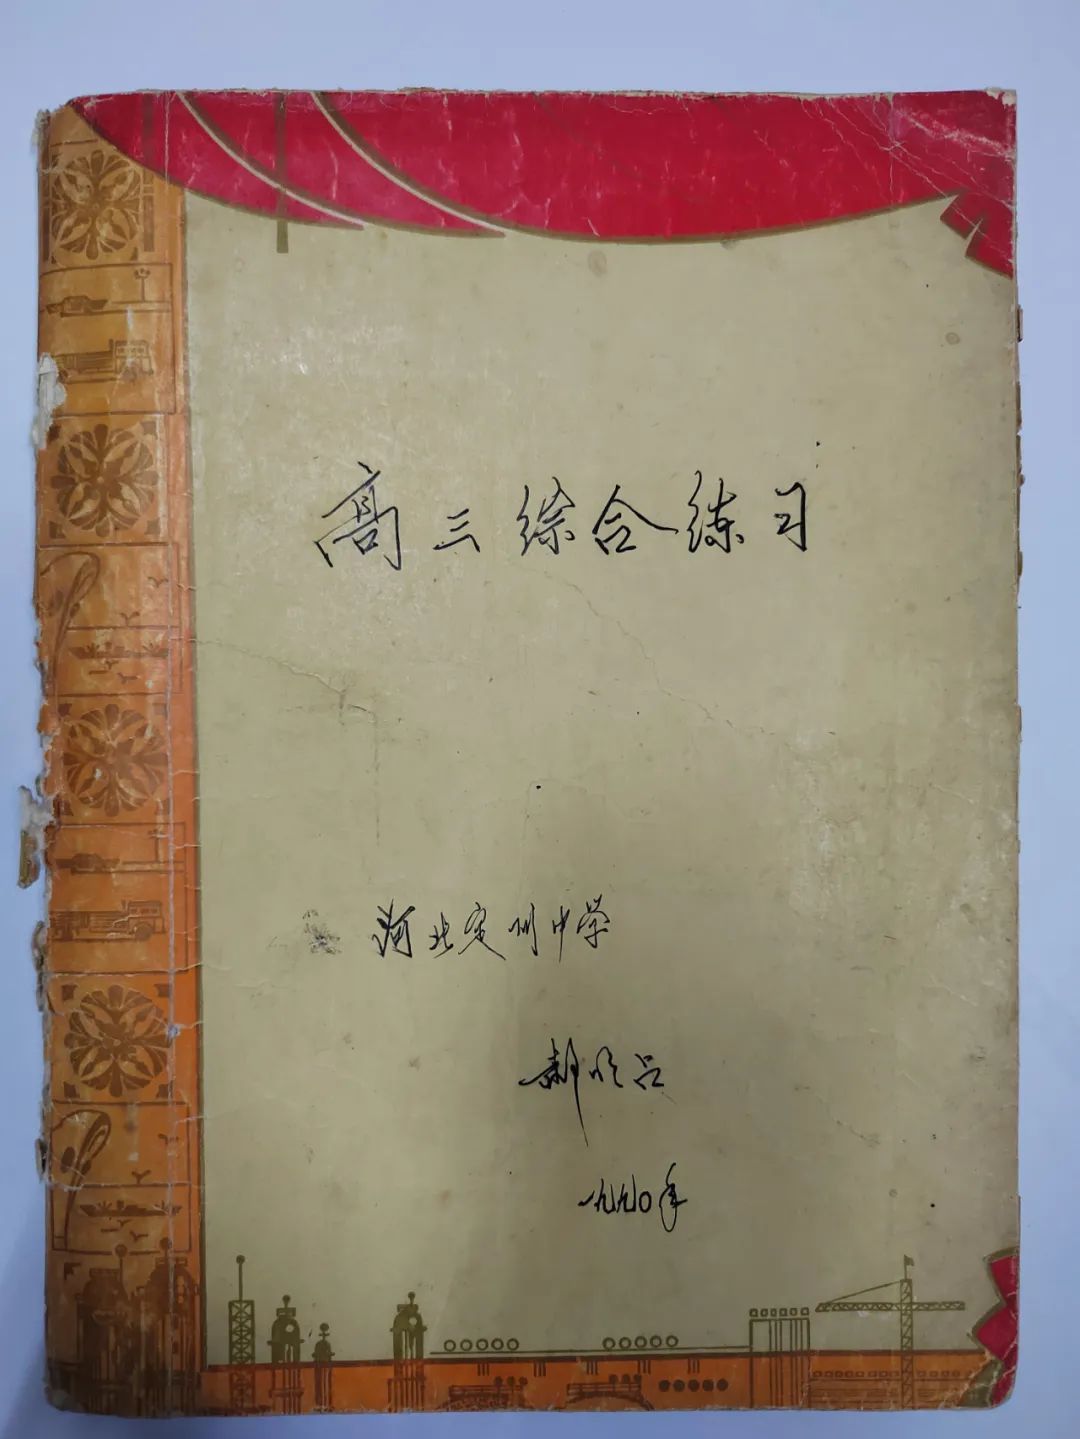 高三综合练习
河北定州中学
郝
一九九〇年